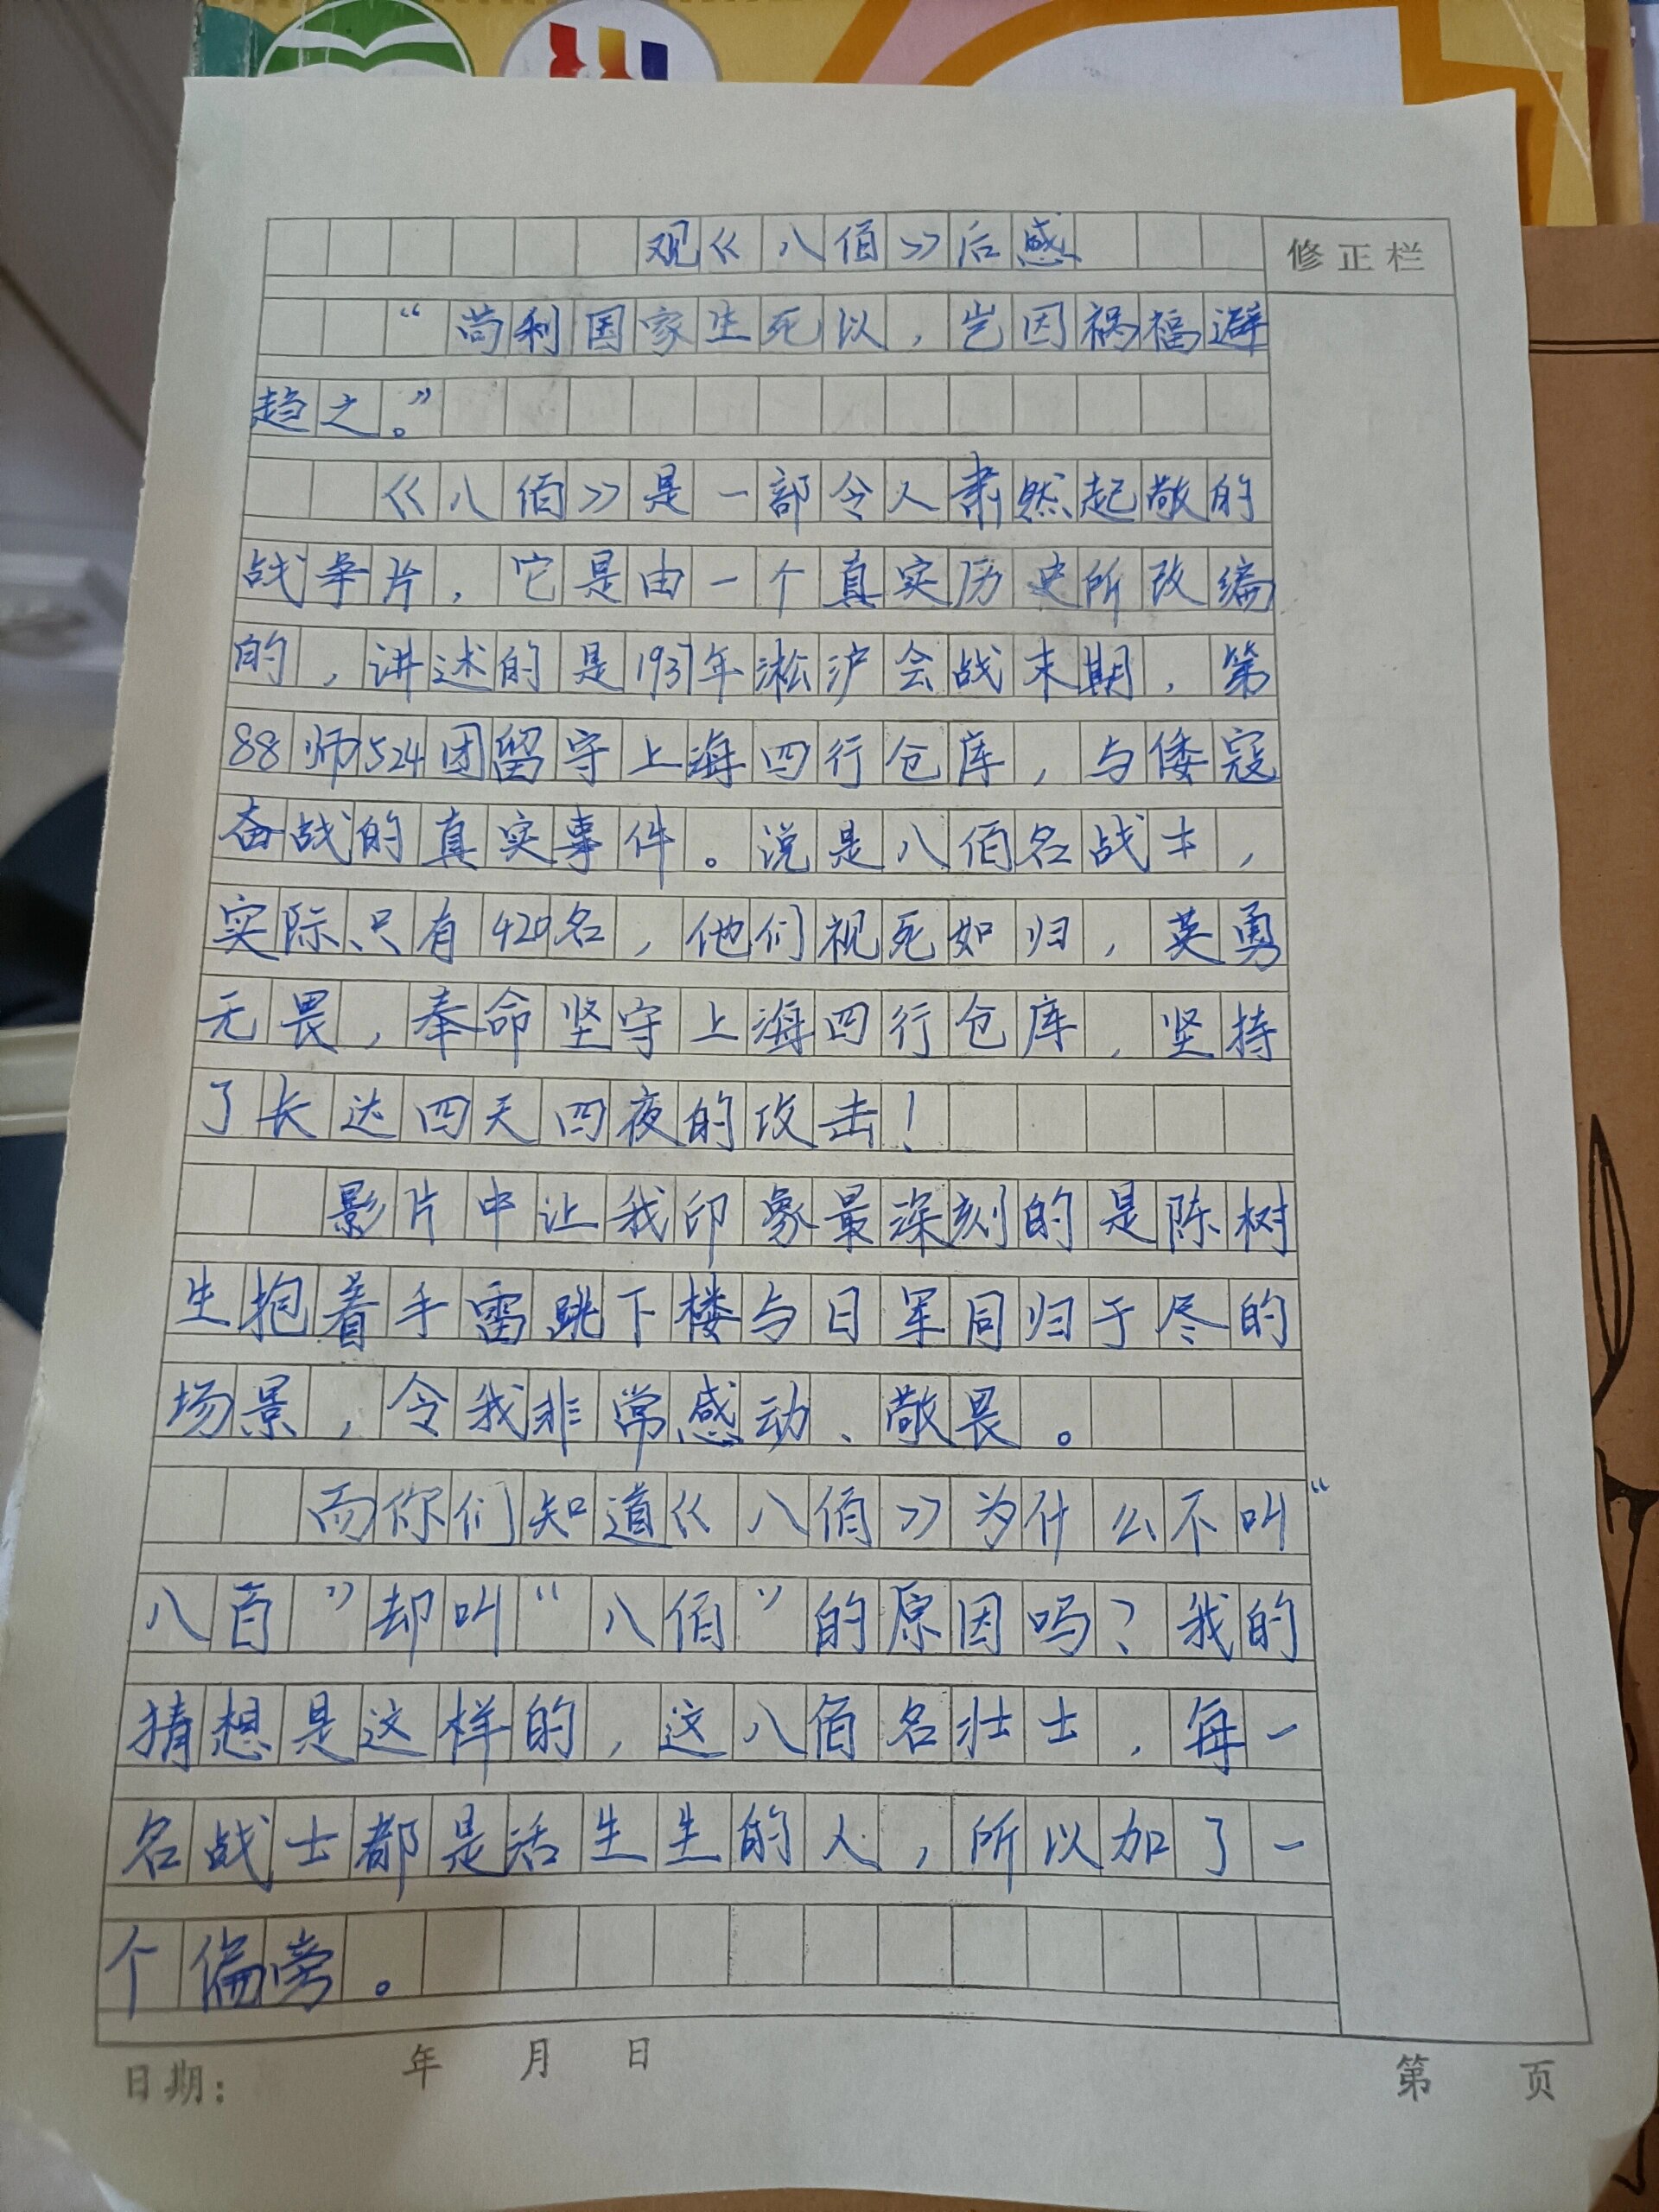 观《八佰》后感
修正栏
“苟利国家生死以，岂因祸福避
趋之。”
《八佰》是一部令人肃然起敬的
战争片，它是由一个真实历史所改编
的，讲述的是1937年淞沪会战末期，第
88师524团留守上海四行仓库，与倭寇
奋战的真实事件。说是八佰名战士，
实际只有420名，他们视死如归，英勇
无畏，奉命坚守上海四行仓库，坚持
了长达四天四夜的攻击！
影片中让我印象最深刻的是陈树
生抱着手雷跳下楼与日军同归于尽的
场景，令我非常感动、敬畏。
而你们知道《八佰》为什么不叫“
八百”却叫“八佰”的原因吗？我的
猜想是这样的，这八佰名壮士，每一
名战士都是活生生的人，所以加了一
个偏旁。
日期： 年 月 日 第 页